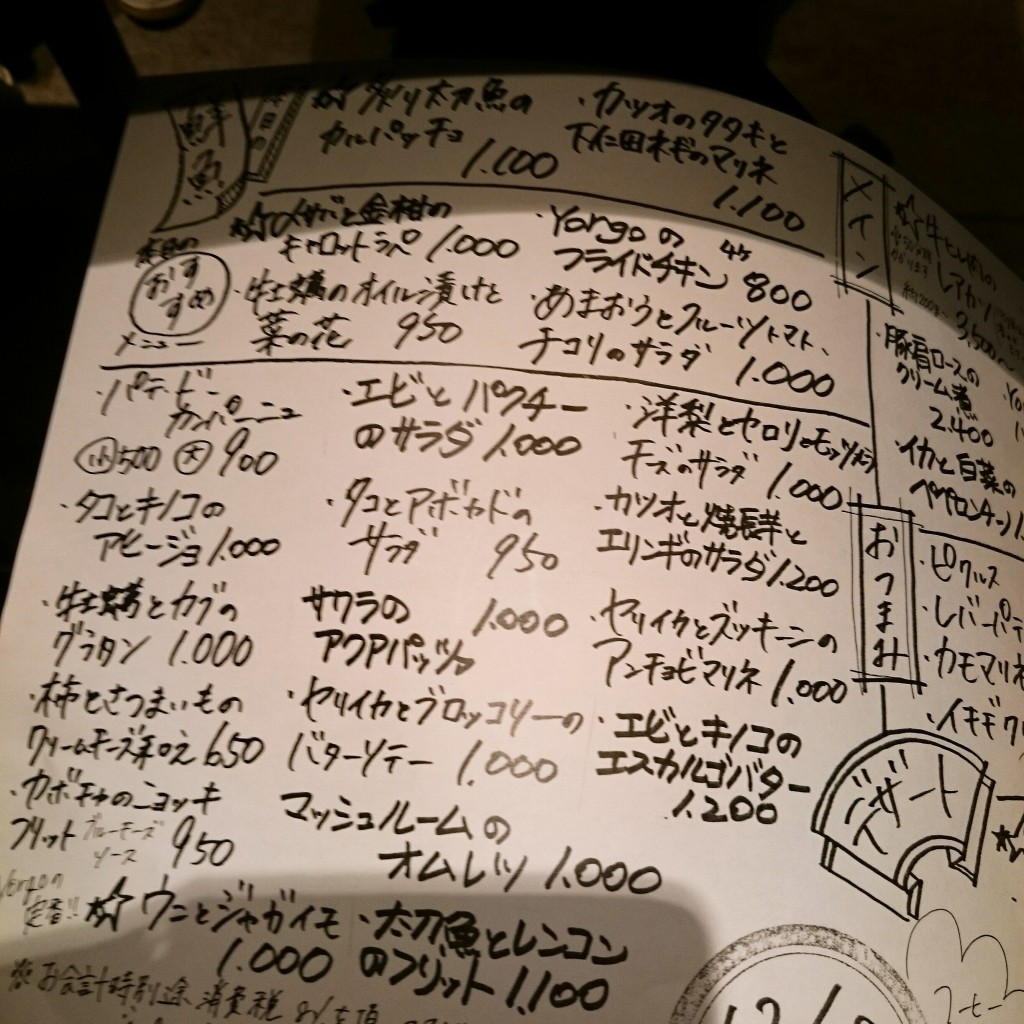 本日の
鮮魚
☆炙り太刀魚の
カルパッチョ
1.100
・カツオのタタキと
下仁田ネギのマリネ
1.100
本日の
おすすめ
メニュー
☆〆サバと金柑の
キャロットラペ 1.000
・牡蠣のオイル漬けと
菜の花 950
・Yorgoの 4ケ
フライドチキン 800
・あまおうとフルーツトマト、
チコリのサラダ 1.000
・パテ・ド・
カンパーニュ
小 500 大 900
・タコとキノコの
アヒージョ 1.000
・牡蠣とカブの
グラタン 1.000
・柿とさつまいもの
クリームチーズ和え 650
・カボチャのニョッキ
フリット ブルーチーズ
ソース 950
Yorgoの
定番!! ☆ウニとジャガイモ
1.000
・エビとパクチー
のサラダ 1.000
・タコとアボカドの
サラダ 950
サワラの 1.000
アクアパッツァ
・ヤリイカとブロッコリーの
バターソテー 1.000
マッシュルームの
オムレツ 1.000
・太刀魚とレンコン
のフリット 1.100
・洋梨とセロリとモッツァレラ
チーズのサラダ 1.000
・カツオと焼長芋と
エリンギのサラダ 1.200
・ヤリイカとズッキーニの
アンチョビマリネ 1.000
・エビとキノコの
エスカルゴバター
1.200
※お会計時別途 消費税 8%を頂
メイン
☆牛ヒレ肉の
レアカツ
3.500
・豚肩ロースの
クリーム煮
2.400
・イカと白菜の
ペペロンチーノ
おつまみ
・ピクルス
・レバーパテ
・カモマリネ
・イチヂク
デザート
コーヒー